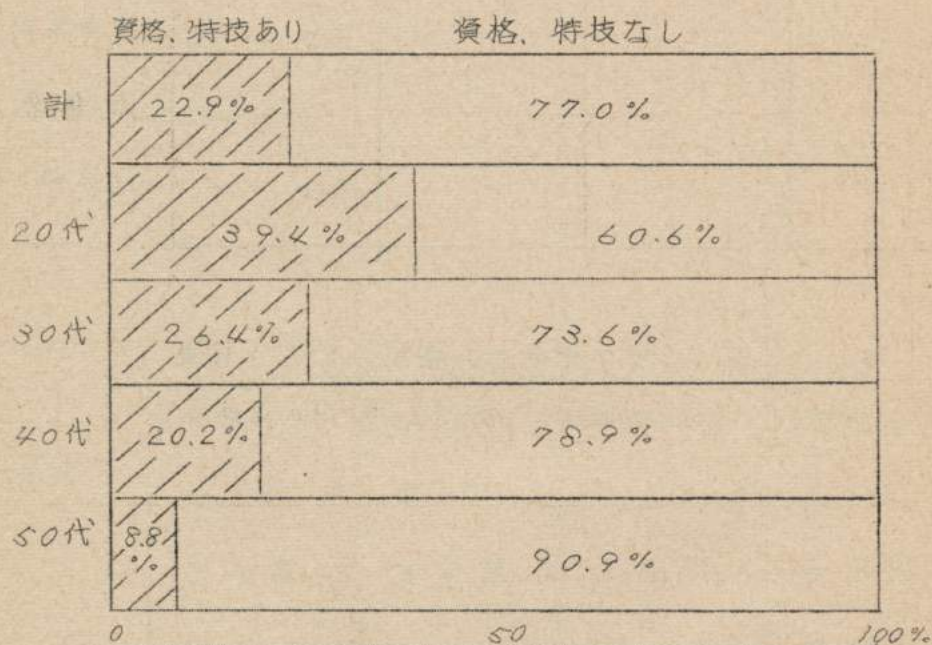 資格、特技あり 資格、特技なし
計 22.9% 77.0%
20代 39.4% 60.6%
30代 26.4% 73.6%
40代 20.2% 78.9%
50代 8.8% 90.9%
0 50 100%